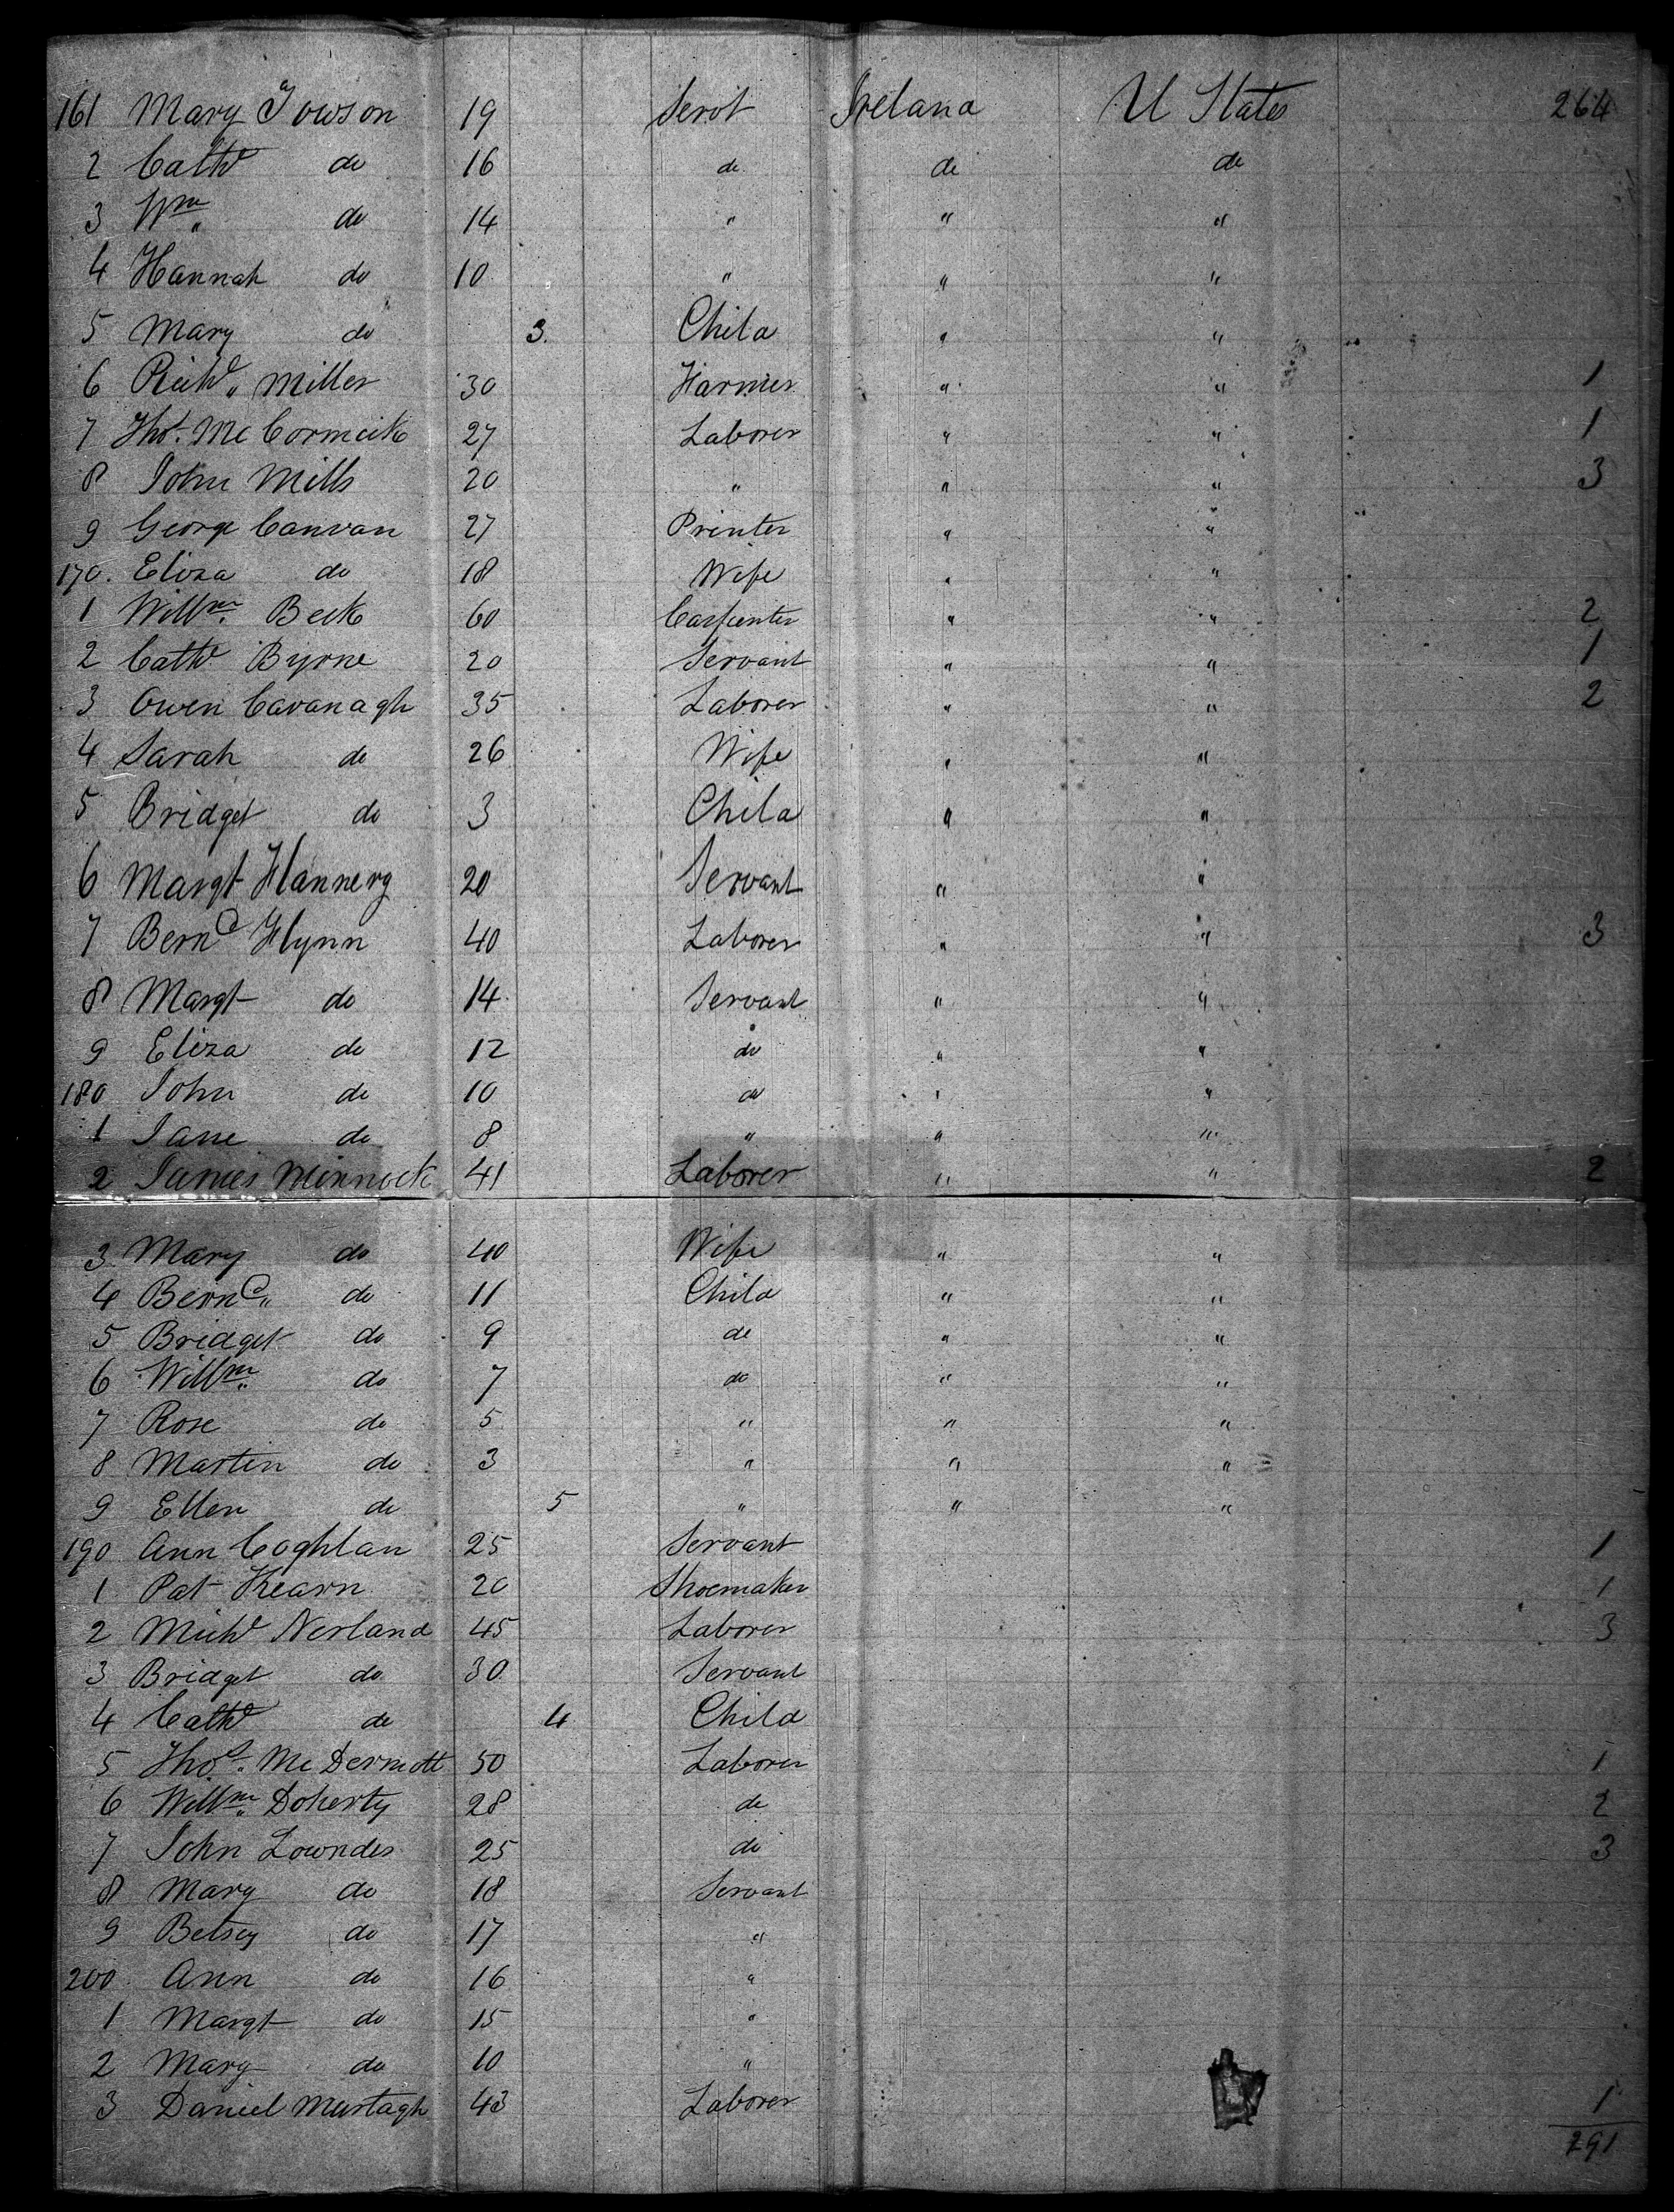 161 Mary Towson 19 Servt Ireland U States 264
2 Cathe do 16 do do do
3 Wm " do 14 " " "
4 Hannah do 10 " " "
5 Mary do 3 Child " "
6 Richd " Miller 30 Farmer " " 1
7 Thos. McCormick 27 Laborer " " 1
8 John Mills 20 " " " 3
9 George Canvan 27 Printer " "
170. Eliza do 18 Wife " "
1 Willm. Beck 60 Carpenter " " 2
2 Cathe Byrne 20 Servant " " 1
3 Owen Cavanagh 35 Laborer " " 2
4 Sarah do 26 Wife " "
5 Bridget do 3 Child " "
6 Margt Flannery 20 Servant " "
7 Bernd Flynn 40 Laborer " " 3
8 Margt do 14 Servant " "
9 Eliza do 12 do " "
180 John do 10 do " "
1 Jane do 8 " " "
2 James Minnock 41 Laborer " " 2
3 Mary do 40 Wife " "
4 Bernd " do 11 Child " "
5 Bridget do 9 do " "
6 Willm. do 7 do " "
7 Rose do 5 " " "
8 Martin do 3 " " "
9 Ellen do 5 " " "
190 Ann Coghlan 25 Servant 1
1 Pat Kearn 20 Shoemaker 1
2 Michl Nerland 45 Laborer 3
3 Bridget do 30 Servant
4 Cathe do 4 Child
5 Thos. McDermott 50 Laborer 1
6 Willm. Doherty 28 do 2
7 John Lowndes 25 do 3
8 Mary do 18 Servant
9 Betsey do 17 "
200 Ann do 16 "
1 Margt do 15 "
2 Mary do 10 "
3 Daniel Murtagh 43 Laborer 1
291